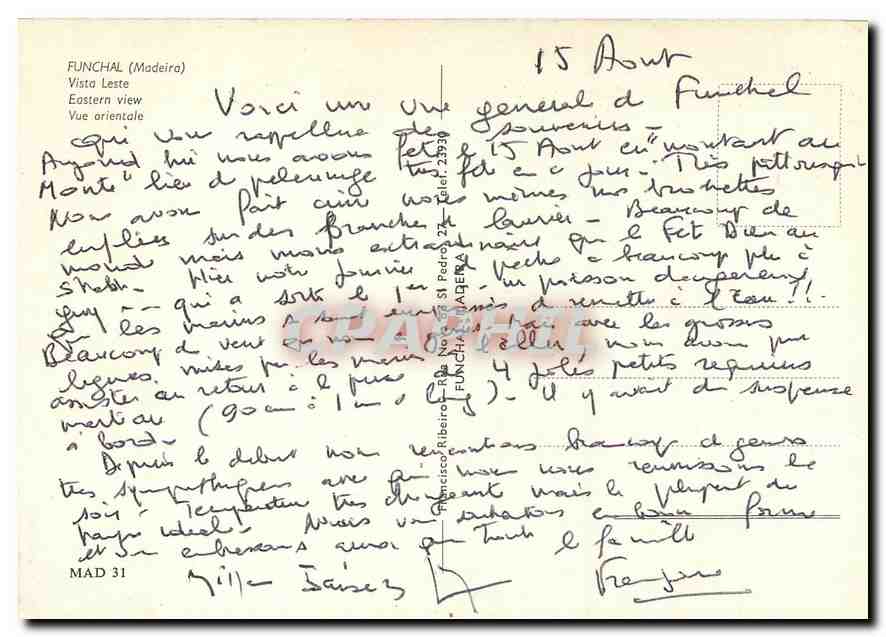 FUNCHAL (Madeira)
Vista Leste
Eastern view
Vue orientale
15 Aout
Voici un vue general d Funchal
qui vous rappellera des souvenirs -
Aujourd hui nous avons fêté le 15 Aout en "montant au
Monte" lieu d pelerinage très fêté en c jour - Très pittoresque
Nous avons fait cuire nous mêmes nos brochettes
enfilées sur des branches d laurier - Beaucoup de
monde mais moins extraordinaire que la Fête Dieu au
- Hier notre journée d pêche a beaucoup plu à
Guy -- qui a sorti le 1er un poisson
les marins se sont empressés d remettre à l'eau !!
Beaucoup d vent qui nous a gênés mais avec les grosses
lignes mises par les marins à l'aller nous avons pu
assister au retour à la prise de 4 jolis petits requins
marteau (90 cm à 1 m d long) - Il y avait du suspense
à bord -
Depuis le début nous rencontrons beaucoup d gens
très sympathiques avec qui nous nous réunissons le
soir - Température très changeante mais la plupart du
temps idéale - Nous vous souhaitons en bonne forme
et vous embrassons ainsi que toute la famille
Françoise
MAD 31
Francisco Ribeiro - Rua Nova de S. Pedro, 27 - Telef. 23930
FUNCHAL - MADEIRA
CPARAMA